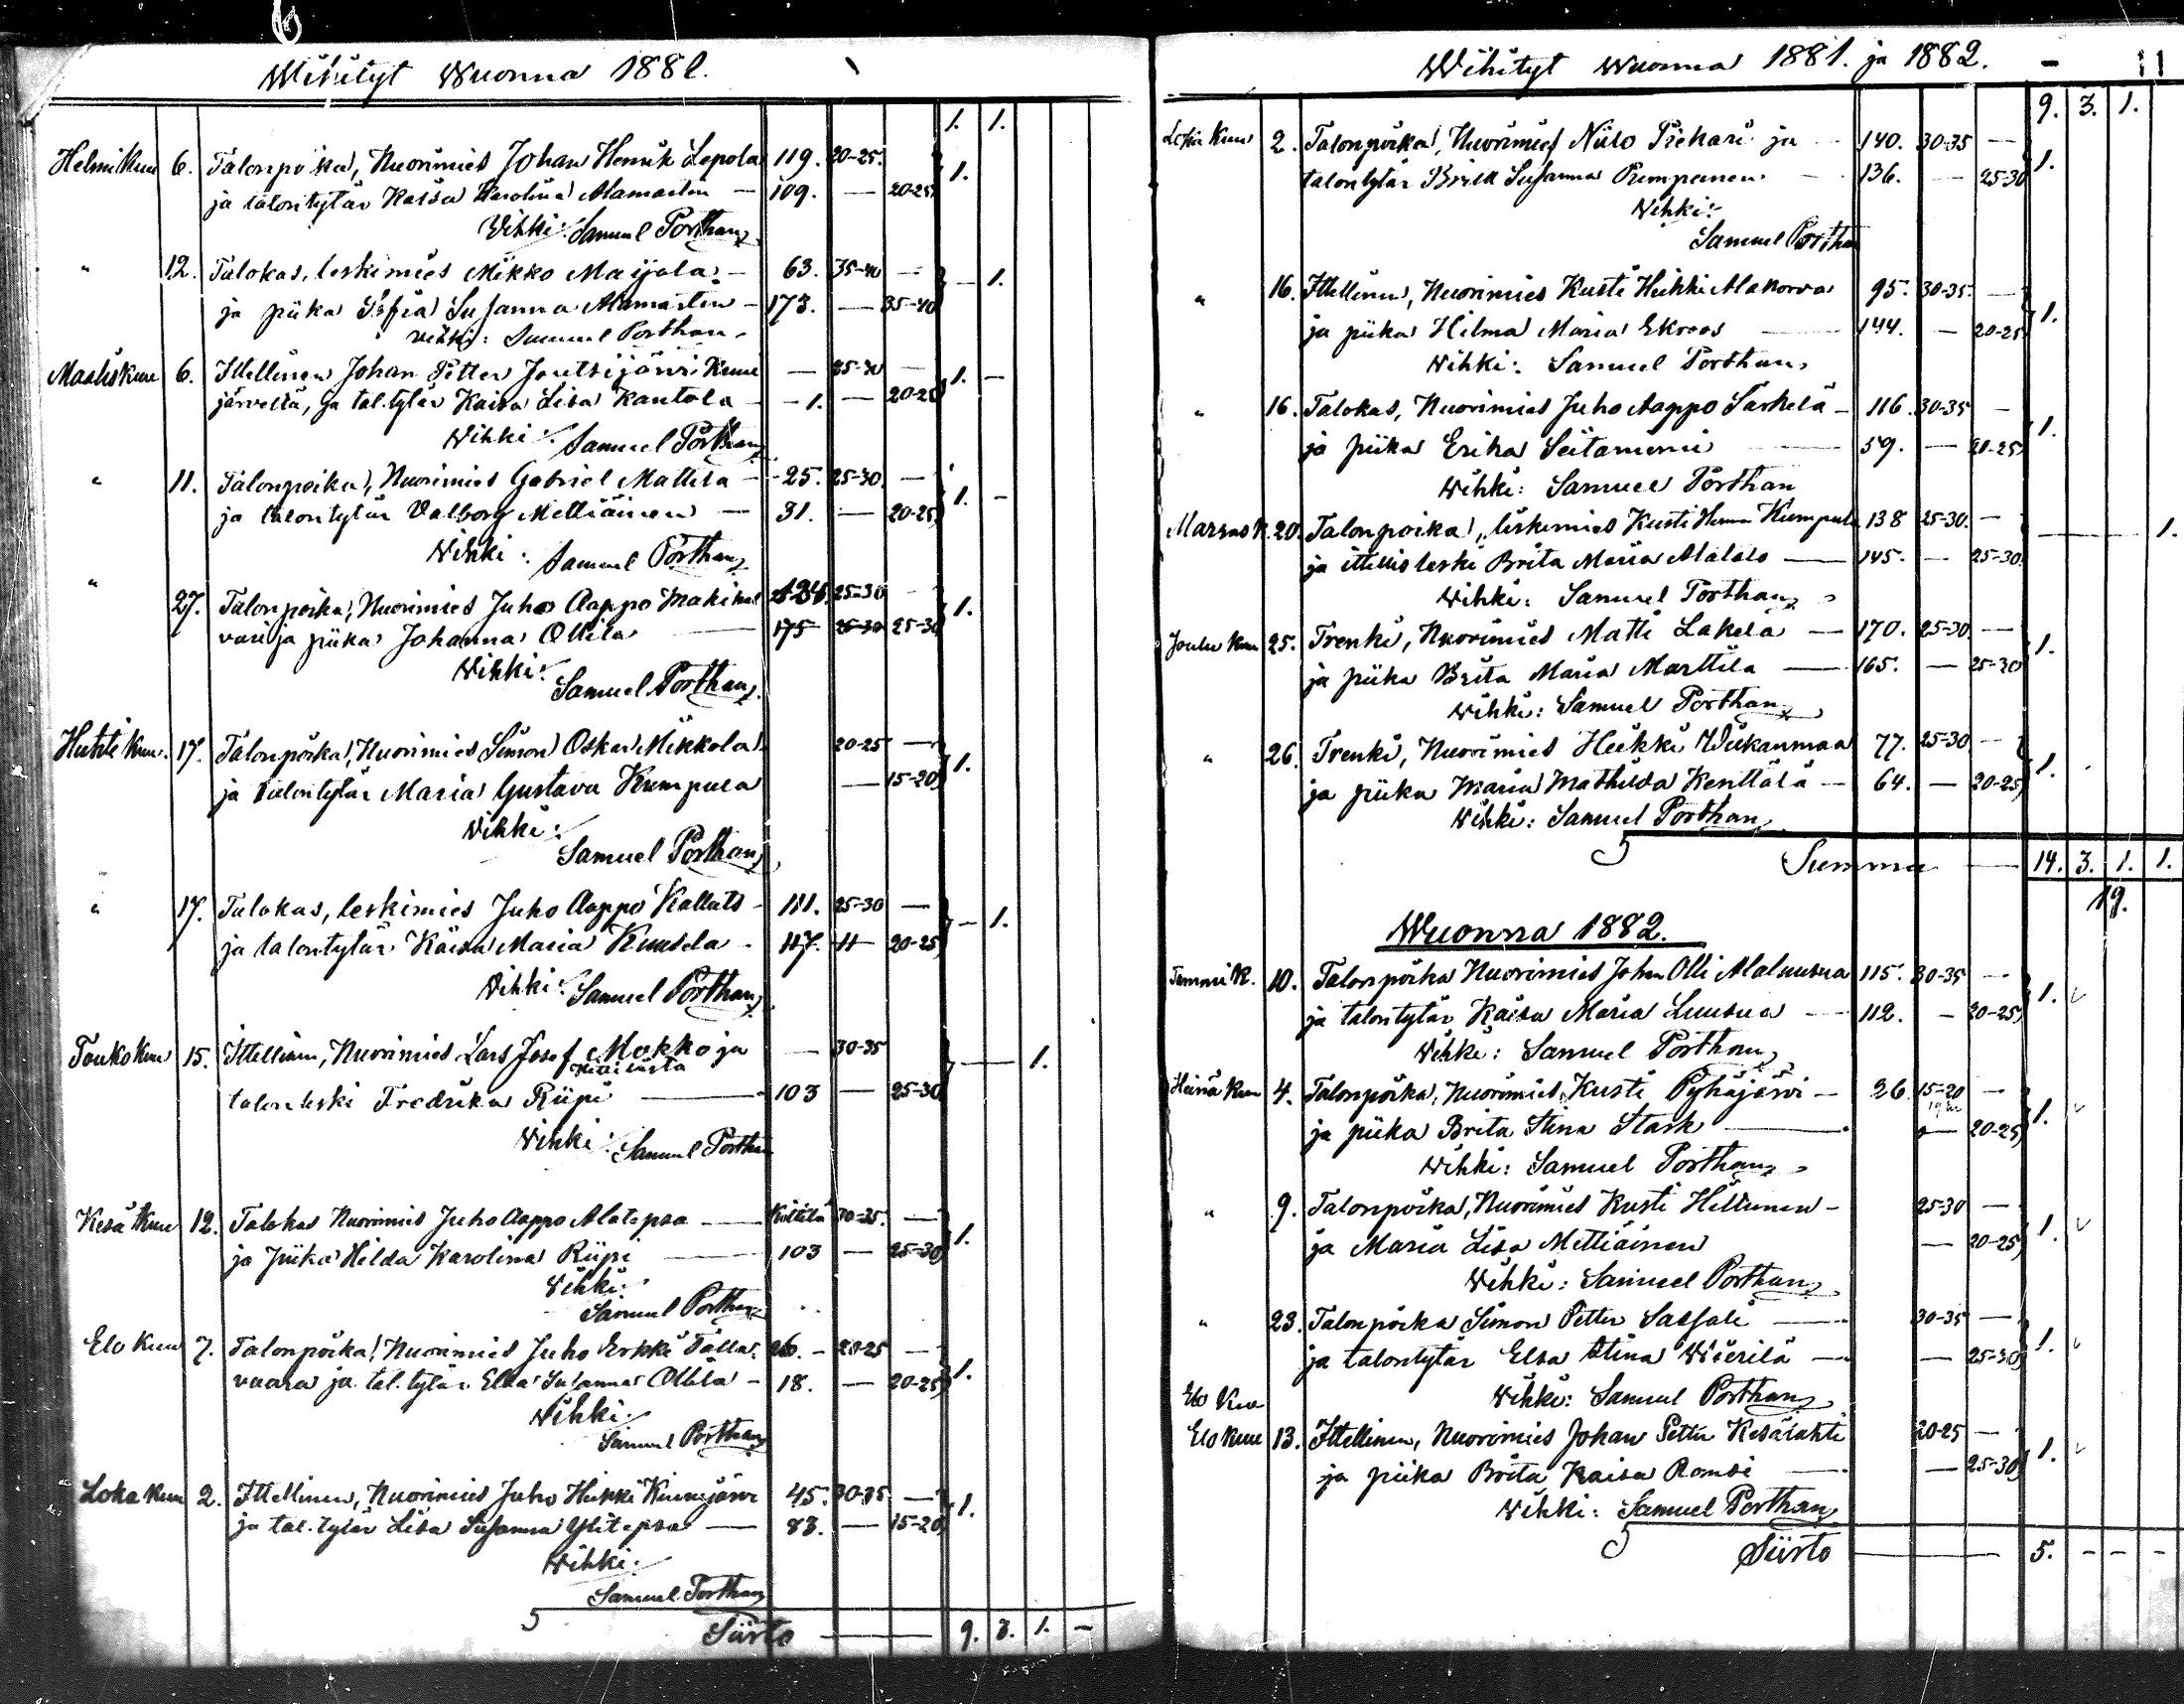 Wihityt Wuonna 1881.
1. 1.
HelmiKuu 6. Talonpoika, Nuorimies Johan Henrik Lepola 119. 20-25. 1.
ja talontytär Kaisa Karolina Alamartin — 109. — 20-25
Wihki: Samuel Porthan
" 12. Talokas, leskimies Mikko Maijala — 63. 35-40 — — 1.
ja piika Sofia Susanna Alamartin — 173. — 35-40
Wihki: Samuel Porthan
MaalisKuu 6. Ittellinen Johan Petter Joutsijärvi Kemi — 25-30 — 1. —
järveltä, ja tal.tytär Kaisa Lisa Kantola — 1. — 20-25
Wihki: Samuel Porthan
" 11. Talonpoika, Nuorimies Gabriel Mattila — 25. 25-30. — 1. —
ja talontytär Valborg Mettiäinen — 31. — 20-25
Wihki: Samuel Porthan
" 27. Talonpoika, Nuorimies Juho Aappo 25-30 — 1.
ja piika Johanna Ollila — 175 25-30 25-30
Wihki: Samuel Porthan
Huhti Kuu. 17. Talonpoika, Nuorimies Simon Oskar Mikkola 20-25 — 1.
ja talontytär Maria Gustava Kumpula — 15-20
Wihki:
Samuel Porthan
" 17. Talokas, leskimies Juho Aappo Kallats — 111. 25-30 — — 1.
ja talontytär Kaisa Maria Kuusela — 117. — 20-25
Wihki: Samuel Porthan
Touko Kuu 15. Ittellinen, Nuorimies Lars Josef Mokko ja — 30-35 — 1.
talonleski Fredrika Riipi — 103 — 25-30
Wihki: Samuel Porthan
Kesä Kuu 12. Talokas Nuorimies Juho Aappo Alatapsa — Kittilä 30-35. — 1.
ja piika Hilda Karolina Riipi — 103 — 25-30
Wihki:
Samuel Porthan
Elo Kuu 7. Talonpoika, Nuorimies Juho Erkki Talla- 26. — 20-25 — 1.
vaara ja tal.tytär Elsa Susanna Ollila — 18. — 20-25
Wihki:
Samuel Porthan
Loka Kuu 2. Ittellinen, Nuorimies Juho Heikki 45. 30-35 — 1.
ja tal.tytär Lisa Susanna Ylitapsa — 83. — 15-20
Wihki:
Samuel Porthan
Siirto — 9. 3. 1. —
Wihityt Wuonna 1881. ja 1882. — 11
9. 3. 1.
Loka Kuu 2. Talonpoika, Nuorimies Niilo Piekari ja 140. 30-35 — 1.
talontytär Brita Susanna Pumpanen — 136. — 25-30
Wihki:
Samuel Porthan
" 16. Ittellinen, Nuorimies Kusti Heikki Alakorva 95. 30-35. — 1.
ja piika Hilma Maria Ekroos — 144. — 20-25
Wihki: Samuel Porthan
" 16. Talokas, Nuorimies Juho Aappo Särkelä — 116. 30-35 — 1.
ja piika Erika Seitaniemi — 59. — 20-25
Wihki: Samuel Porthan
Marras K. 20. Talonpoika, leskimies Kusti Herman Kumpula 138 25-30. — 1.
ja ittellisleski Brita Maria Alatalo — 145. — 25-30.
Wihki: Samuel Porthan
Joulu Kuu 25. Trenki, Nuorimies Matti Lakela — 170. 25-30 — 1.
ja piika Brita Maria Marttila — 165. — 25-30
Wihki: Samuel Porthan
" 26. Trenki, Nuorimies Heikki Wiikanmaa 77. 25-30 — 1.
ja piika Maria Mathilda Kenttälä — 64. — 20-25
Wihki: Samuel Porthan
Summa — 14. 3. 1. 1.
19.
Wuonna 1882.
Tammi K. 10. Talonpoika Nuorimies Johan Olli Alaluusua 115. 30-35 — 1.
ja talontytär Kaisa Maria Luusua — 112. — 20-25
Wihki: Samuel Porthan
Heinä Kuu 4. Talonpoika, Nuorimies Kusti Pyhäjärvi — 26. 15-20 — 1.
ja piika Brita Stina Stark — — 20-25
Wihki: Samuel Porthan
" 9. Talonpoika, Nuorimies Kusti Hiltunen — 25-30 — 1.
ja Maria Lisa Mettiäinen — 20-25
Wihki: Samuel Porthan
" 23. Talonpoika Simon Petter Sassali — 30-35 — 1.
ja talontytär Elsa Stina Wierilä — — 25-30
Wihki: Samuel Porthan
Elo Kuu
Elo Kuu 13. Ittellinen, Nuorimies Johan Petter Kesälahti 20-25 — 1.
ja piika Brita Kaisa Romsi — — 25-30
Wihki: Samuel Porthan
Siirto — 5. — — —